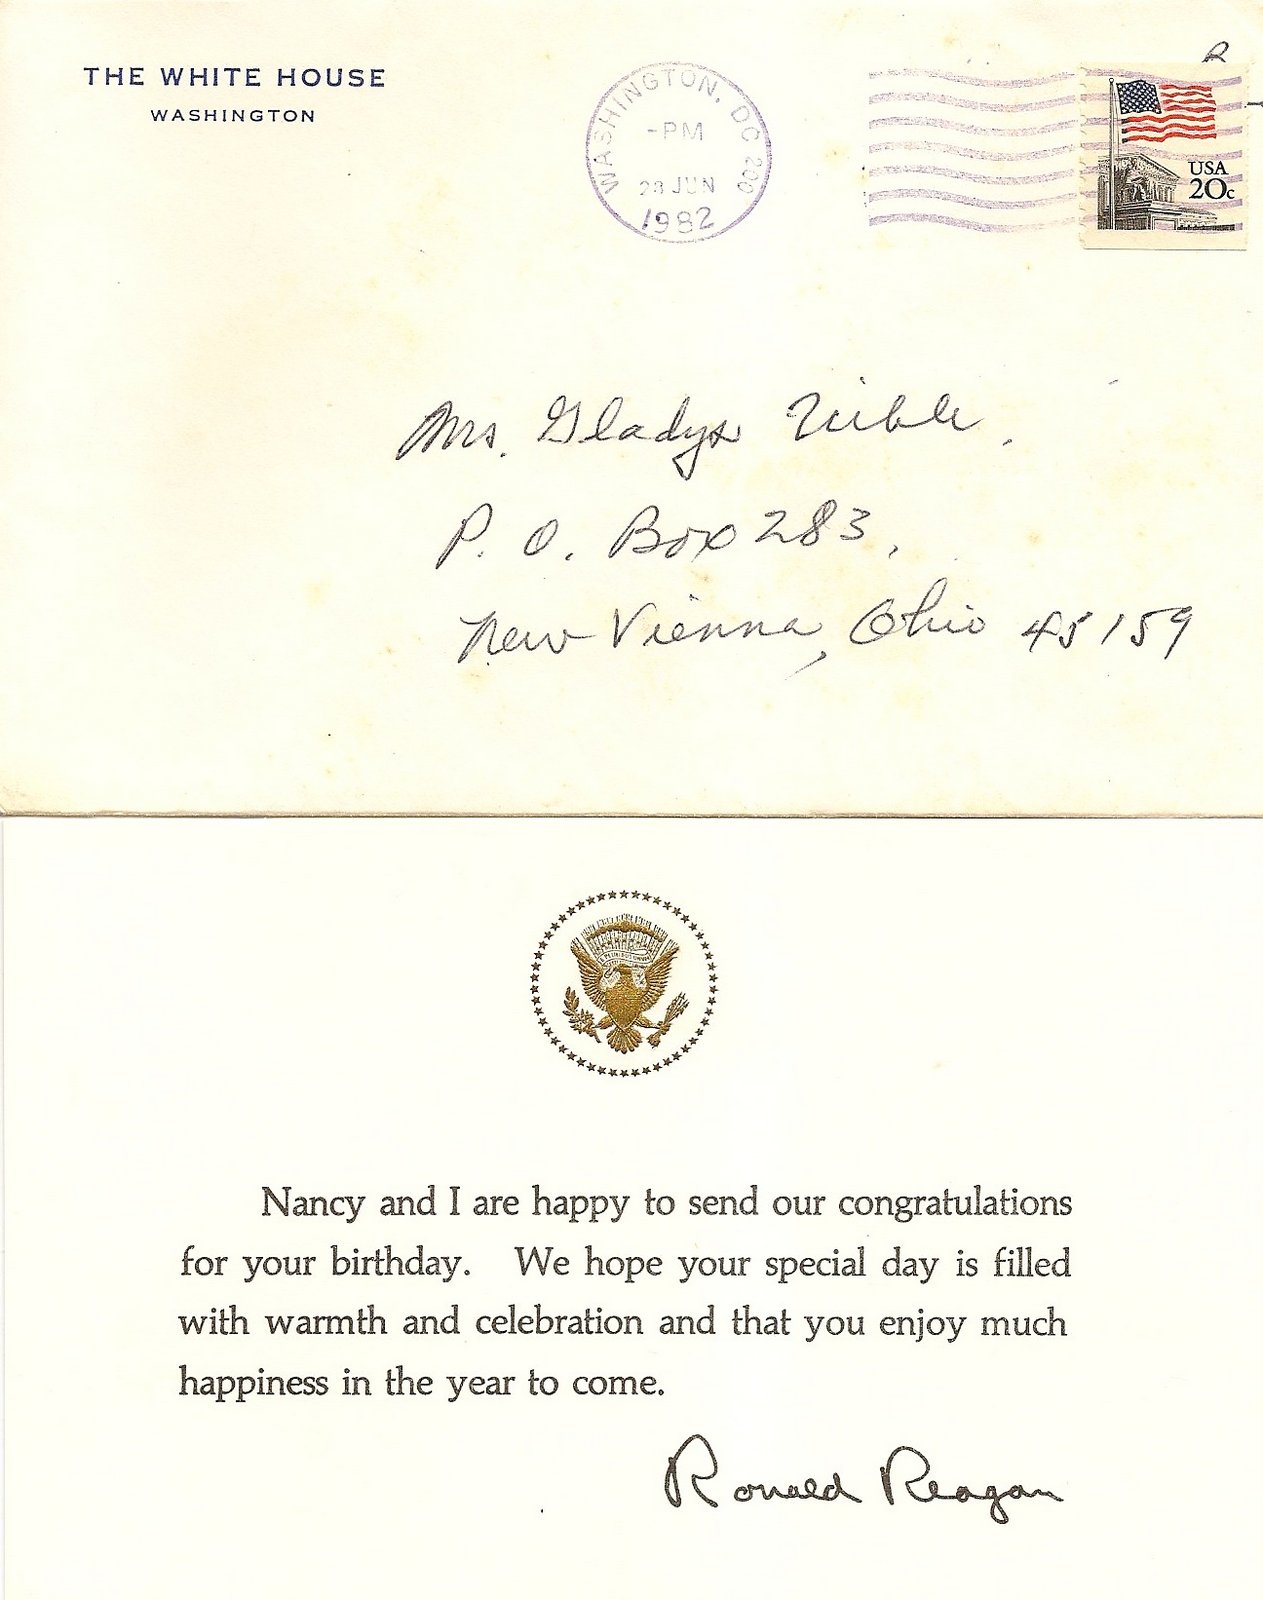 THE WHITE HOUSE
WASHINGTON
WASHINGTON, DC 200
-PM
28 JUN
1982
R
USA
20c
Mrs. Gladys
P. O. Box 283,
New Vienna, Ohio 45159
Nancy and I are happy to send our congratulations
for your birthday. We hope your special day is filled
with warmth and celebration and that you enjoy much
happiness in the year to come.
Ronald Reagan